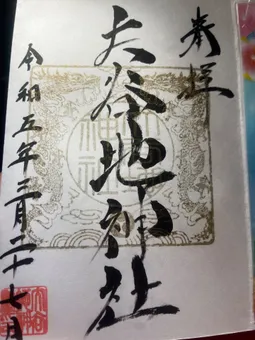 奉拝
大谷地神社
令和五年三月二十七日